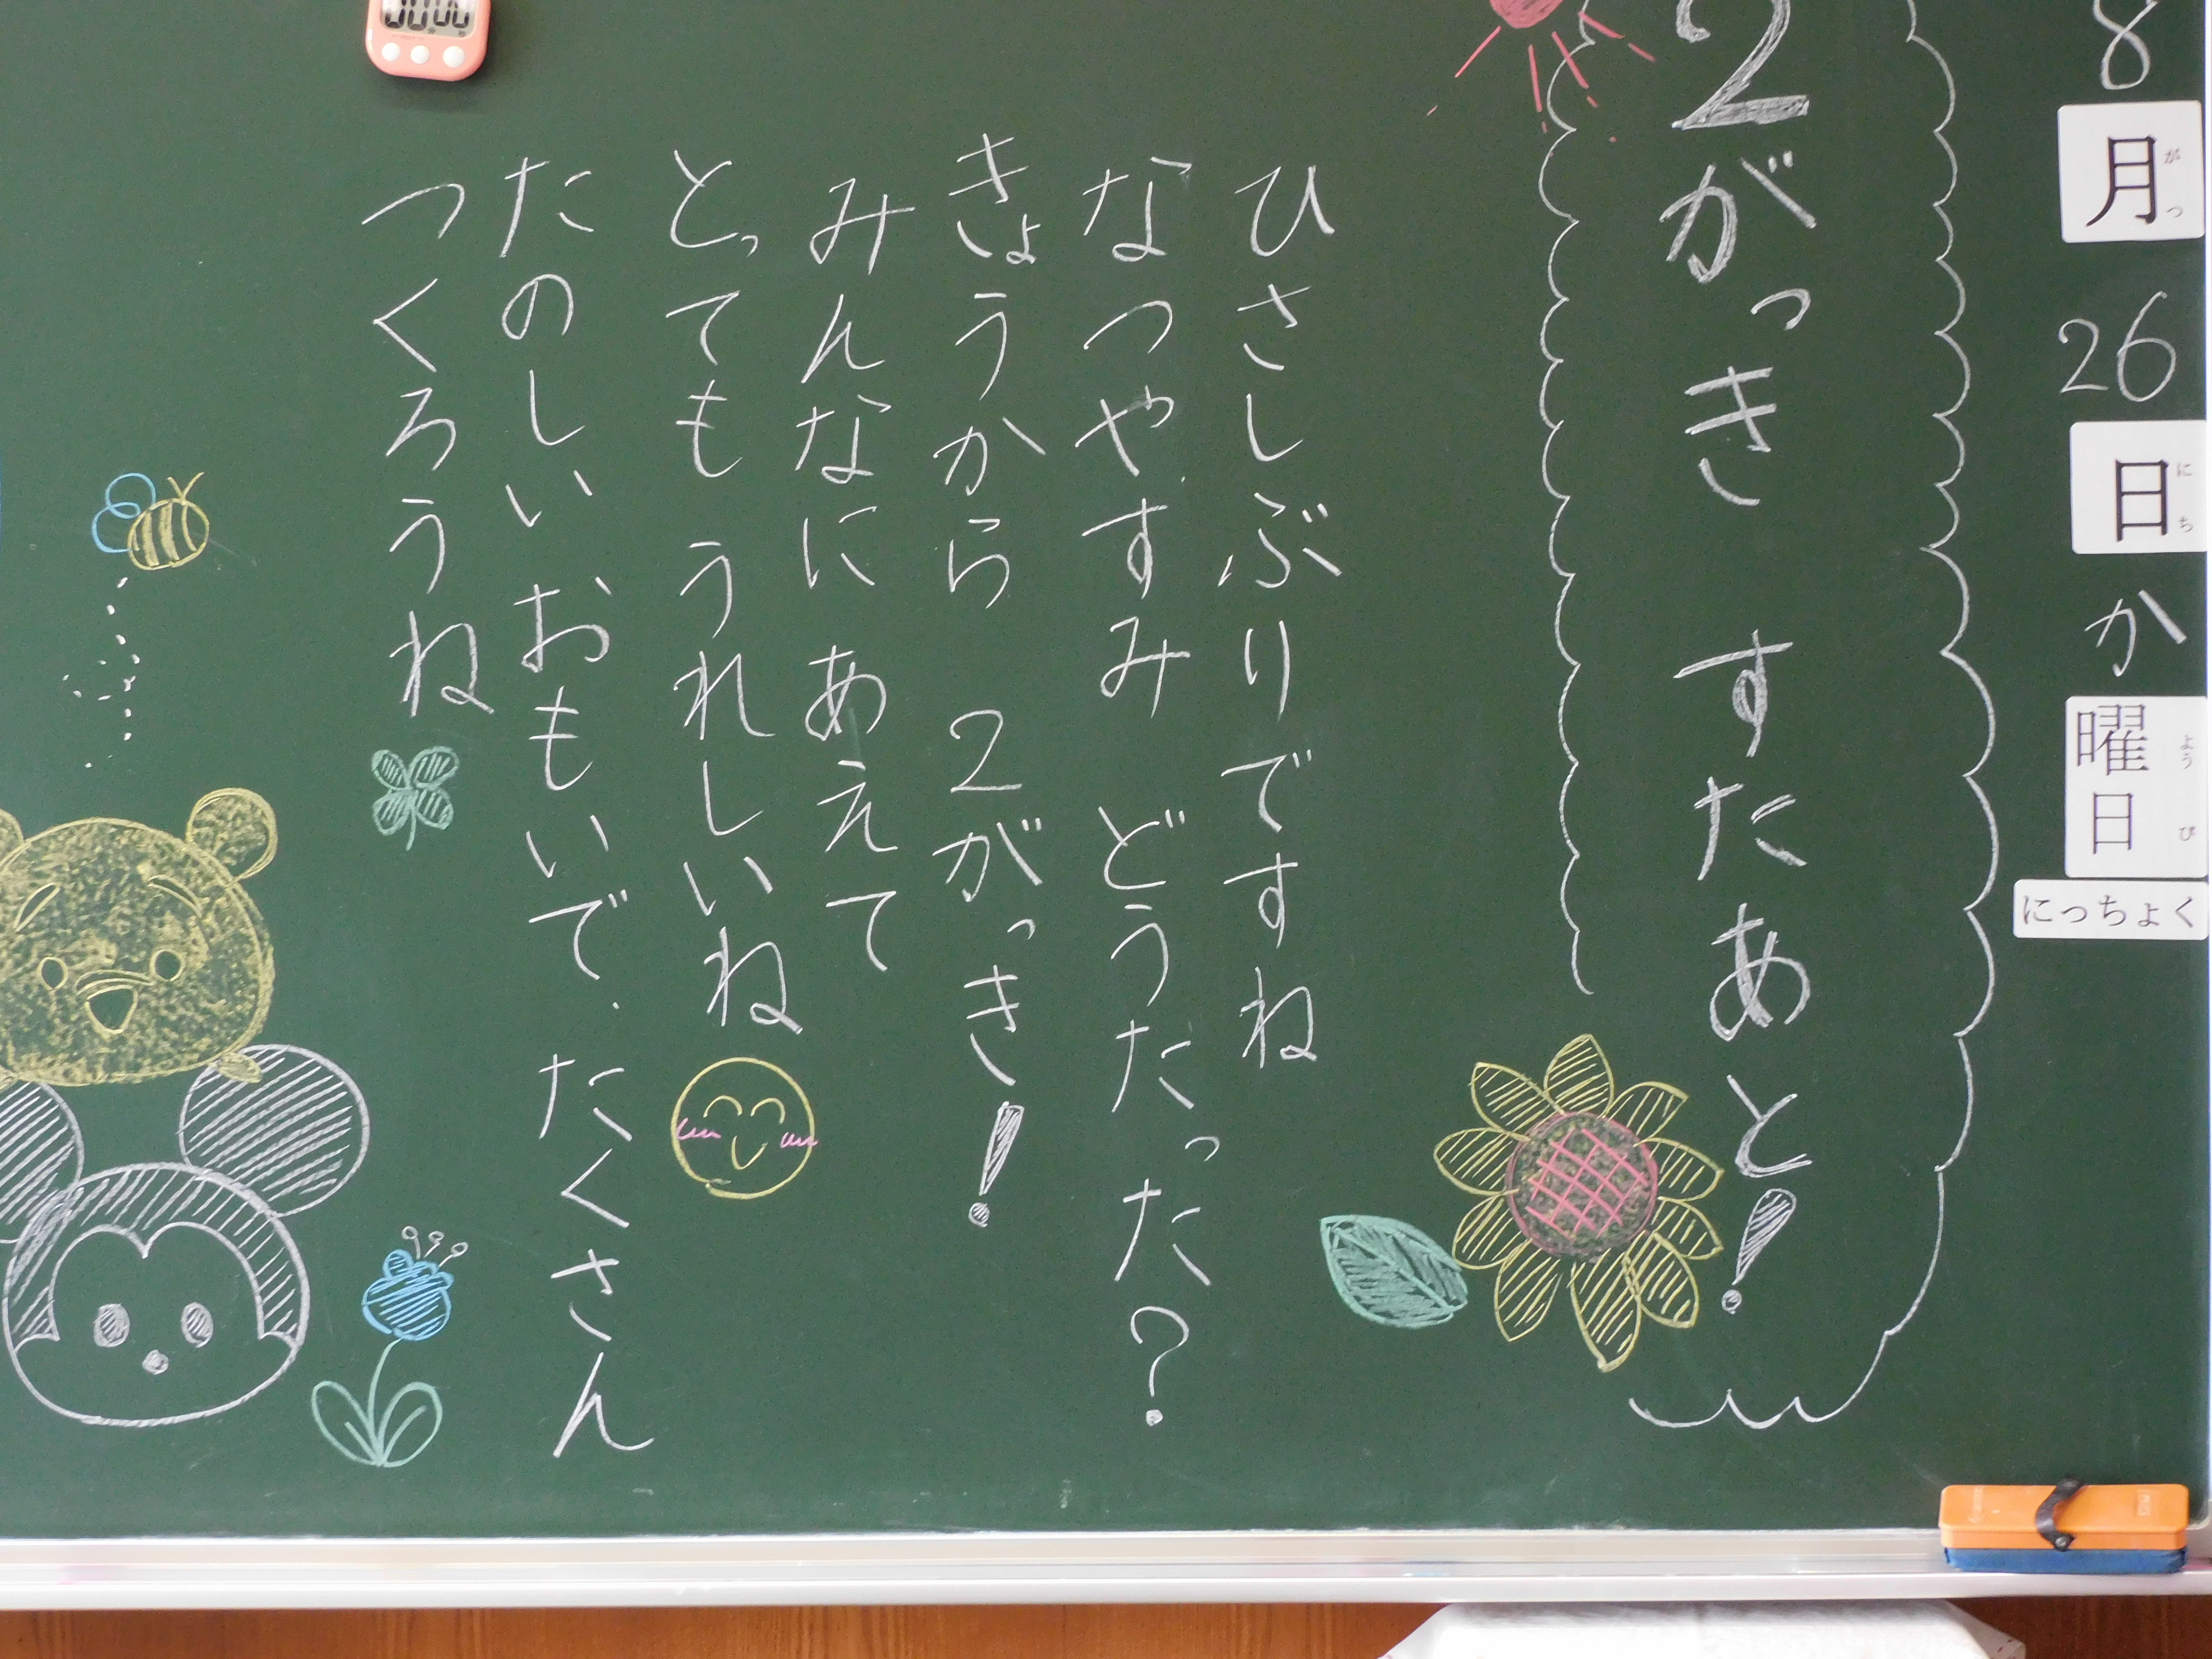 8月26日か曜日
がつ
にち
ようび
にっちょく
2がっき すたあと!
ひさしぶりですね
なつやすみ どうたった?
きょうから 2がっき!
みんなに あえて
とっても うれしいね
たのしい おもいで、たくさん
つくろうね
00 00